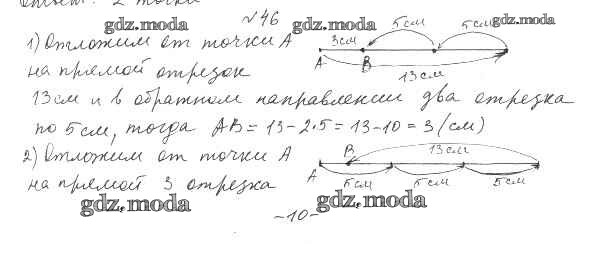 Ответ: 2 точки
№46
1) Отложим от точки А
на прямой отрезок
13 см и в обратном направлении два отрезка
по 5 см, тогда АВ = 13 - 2·5 = 13 - 10 = 3 (см)
2) Отложим от точки А
на прямой 3 отрезка
3см 5см 5см
А В
13см
А В 13см
5см 5см 5см
-10-
gdz.moda
gdz.moda
gdz.moda
gdz.moda
gdz.moda